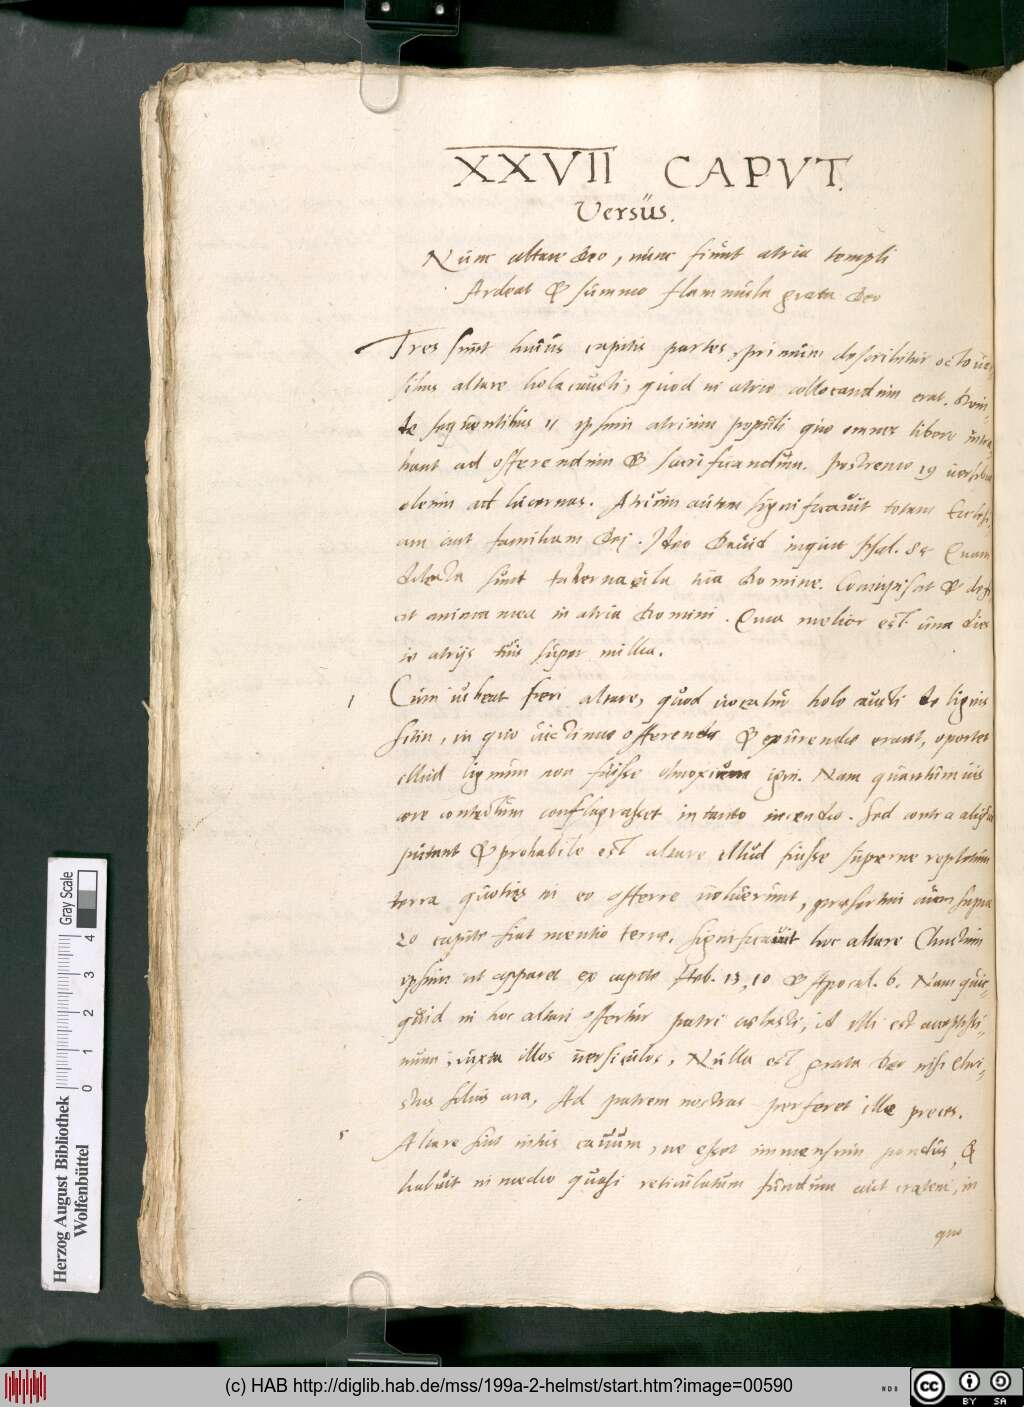 XXVII CAPVT.
Versus.
Nunc altare deo, nunc fiunt atria templi
Ardeat & summo flammula grata deo
Tres sunt huius capitis partes, primum describitur octo uer
sibus altare holocausti, quod in atrio collocandum erat. Dein-
de sequentibus 11 ipsum atrium populi quo omnes libere intra
bant ad offerendum & sacrificandum. Postremo 19 uersibus
oleum ad lucernas. Atrium autem significauit totam Ecclesi-
am aut familiam Dei. Ideo Dauid inquit Psal. 84 Quam
dilecta sunt tabernacula tua Domine. Concupiscit & defi
cit anima mea in atria Domini. Quia melior est una dies
in atrijs tuis super millia.
1 Cum iubeat fieri altare, quod uocatur holocausti de lignis
Sitin, in quo uictimae offerendae & exurendae erant, oportet
illud lignum non fuisse obnoxium igni. Nam quantumuis
aere contectum conflagrasset in tanto incendio. Sed contra aliqui
putant & probabile est altare illud fuisse superne repletum
terra quoties in eo offerre uoluerunt, praesertim cum supra
20 capite fiat mentio terrae. Significauit hoc altare Christum
ipsum ut apparet ex capite Heb. 13, 10 & Apocal. 6. Nam quic-
quid in hoc altari offertur patri caelesti, id illi est acceptissi-
mum, iuxta illos uersiculos, Nulla est grata deo nisi Chri-
stus filius ara, Ad patrem nostras perferet ille preces.
5 Altare fuit intus cauum, ne esset immensum pondus, &
habuit in medio quasi reticulatum fundum aut cratem, in
quo
Herzog August Bibliothek
Wolfenbüttel
0 1 2 3 4
Gray Scale
(c) HAB http://diglib.hab.de/mss/199a-2-helmst/start.htm?image=00590
cc BY SA